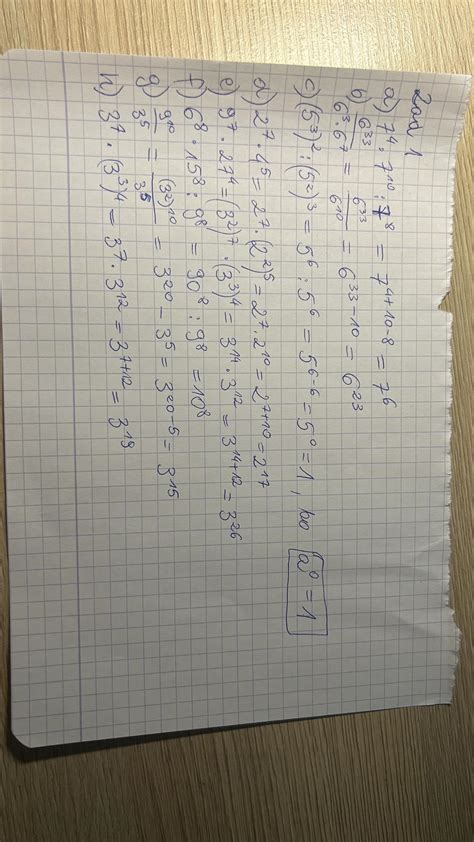 Zad 1
a) 7⁴ · 7¹⁰ : 7⁸ = 7⁴⁺¹⁰⁻⁸ = 7⁶
b) 6³³ / 6³·6⁷ = 6³³ / 6¹⁰ = 6³³⁻¹⁰ = 6²³
c) (5³)² : (5²)³ = 5⁶ : 5⁶ = 5⁶⁻⁶ = 5⁰ = 1, bo a⁰ = 1
d) 2⁷ · 4⁵ = 2⁷ · (2²)⁵ = 2⁷ · 2¹⁰ = 2⁷⁺¹⁰ = 2¹⁷
e) 9⁷ · 27⁴ = (3²)⁷ · (3³)⁴ = 3¹⁴ · 3¹² = 3¹⁴⁺¹² = 3²⁶
f) 6⁸ · 15⁸ : 9⁸ = 90⁸ : 9⁸ = 10⁸
g) 9¹⁰ / 3⁵ = (3²)¹⁰ / 3⁵ = 3²⁰ - 3⁵ = 3²⁰⁻⁵ = 3¹⁵
h) 3⁷ · (3³)⁴ = 3⁷ · 3¹² = 3⁷⁺¹² = 3¹⁹